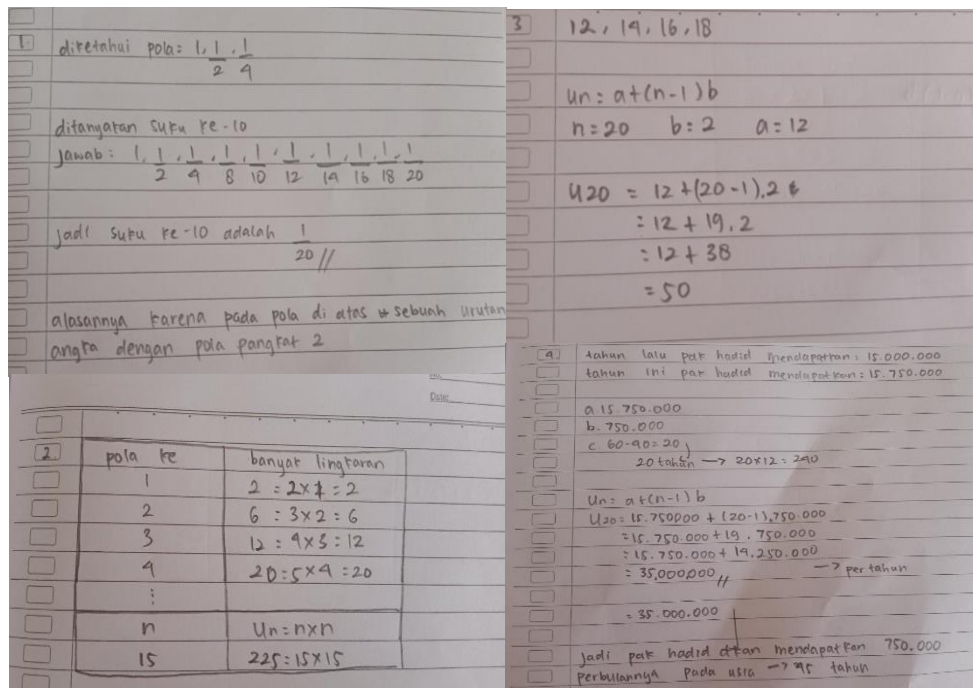 1.
diketahui pola: 1, 1/2, 1/4
ditanyakan suku ke-10
jawab: 1, 1/2, 1/4, 1/8, 1/10, 1/12, 1/14, 1/16, 1/18, 1/20
jadi suku ke-10 adalah 1/20 //
alasannya karena pada pola di atas sebuah urutan
angka dengan pola pangkat 2
Date:
2.
pola ke banyak lingkaran
1 2 = 2x1 = 2
2 6 = 3x2 = 6
3 12 = 4x3 = 12
4 20 = 5x4 = 20
⋮
n Un = nxn
15 225 = 15x15
3
12, 14, 16, 18
Un = a+(n-1)b
n = 20 b = 2 a = 12
U20 = 12 + (20-1).2
= 12 + 19.2
= 12 + 38
= 50
4
tahun lalu pak hadid mendapatkan : 15.000.000
tahun ini pak hadid mendapatkan : 15.750.000
a 15.750.000
b. 750.000
c. 60-40 = 20
20 tahun → 20x12 = 240
Un = a+(n-1) b
U20 = 15.750000 + (20-1).750.000
= 15.750.000 + 19.750.000
= 15.750.000 + 19.250.000
= 35.000.000 // → per tahun
= 35.000.000
jadi pak hadid akan mendapatkan 750.000
perbulannya pada usia → 45 tahun